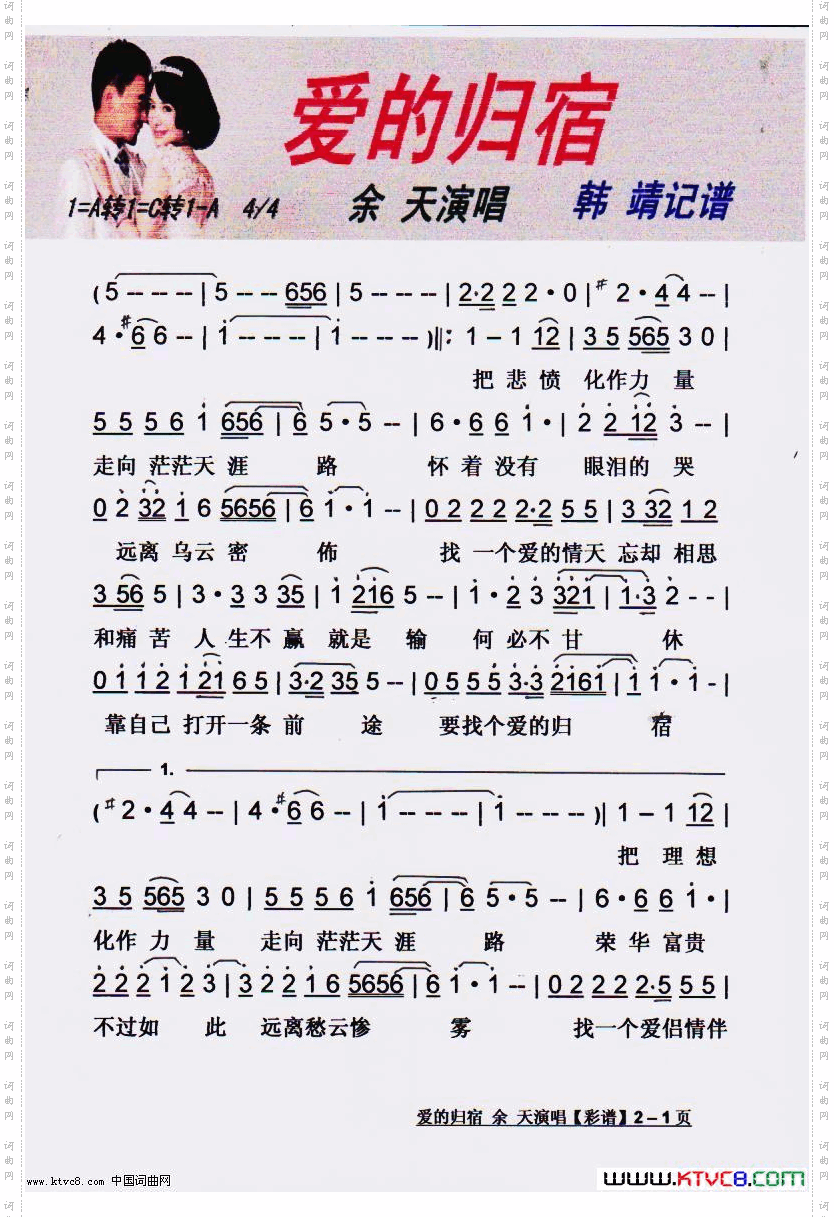 爱的归宿
1=A转1=C转1-A 4/4 余 天演唱 韩 靖记谱
( 5 - - - | 5 - - 656 | 5 - - - - | 2·2 2 2·0 | #2·4 4 - - |
4·#6 6 - - | i - - - - | i - - - - )||: 1 - 1 12 | 3 5 565 3 0 |
把 悲 愤 化作力 量
5 5 5 6 i 656 | 6 5·5 - - | 6·6 6 i· | 2 2 12 3 - - |
走向 茫茫天 涯 路 怀 着 没有 眼泪的 哭
0 2 32 1 6 5656 | 6 i·i - - | 0 2 2 2 2 2·2 5 5 | 3 32 1 2
远离 乌云 密 佈 找 一个爱的情天 忘却 相思
3 56 5 | 3·3 3 35 | 1 216 5 - - | i·2 3 321 | 1·3 2 - - |
和痛 苦 人 生不 赢 就是 输 何 必不 甘 休
0 1 1 2 1 21 6 5 | 3·2 35 5 - - | 0 5 5 5 3·3 2161 | i i·i - |
靠自己 打开一条 前 途 要找个爱的归 宿
1.
( #2·4 4 - - | 4·#6 6 - - | i - - - - | i - - - - )| 1 - 1 12 |
把 理 想
3 5 565 3 0 | 5 5 5 6 i 656 | 6 5·5 - - | 6·6 6 i· |
化作 力 量 走向 茫茫天 涯 路 荣 华 富贵
2 2 2 1 2 3· | 3 2 2 1 6 5656 | 6 i·i - - | 0 2 2 2 2 2·5 5 5 |
不过如 此 远离愁云惨 雾 找一个爱侣情伴
爱的归宿 余 天演唱【彩谱】2－1页
www.ktvc8.com 中国词曲网
WWW.KTVC8.COM